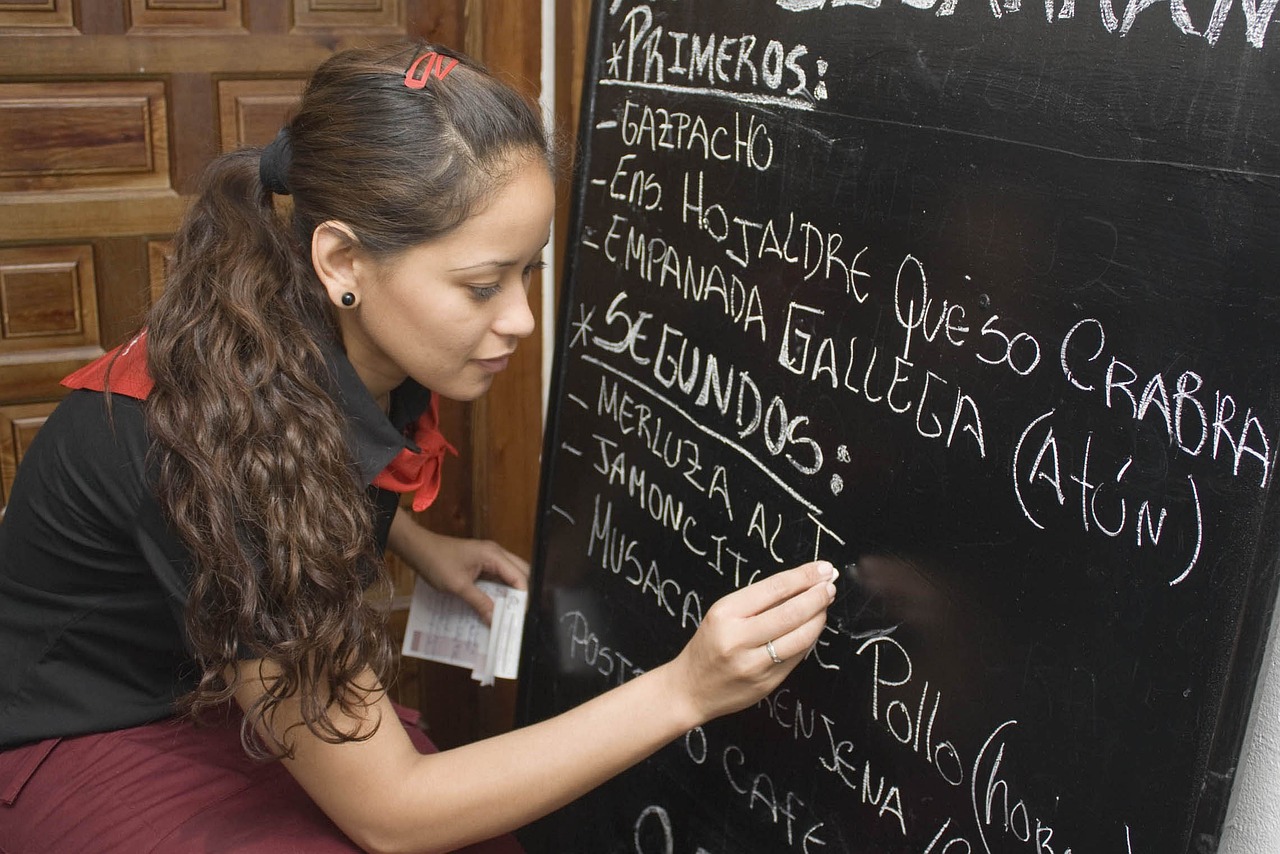 *PRIMEROS:
-GAZPACHO
-Ens. HOJALDRE QUeSO CRABRA
-EMPANADA GALLEGA (Atún)
*SEGUNDOS:
- MERLUZA AL T
- JAMONCITO DE Pollo (hor
- MUSACA BERENJENA
POST O CAFE